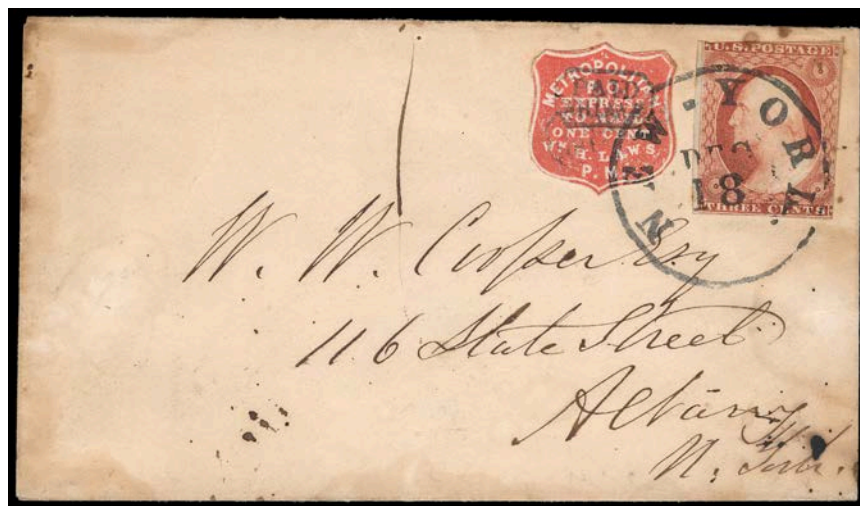 METROPOLITAN
P.O.
EXPRESS
TO MAIL
ONE CENT
WM H. LAWS,
P.M.
PAID
U.S. POSTAGE
THREE CENTS
NEW-YORK
DEC
18
W. W. Cooper Esq
116 State Street
Albany
N. York.